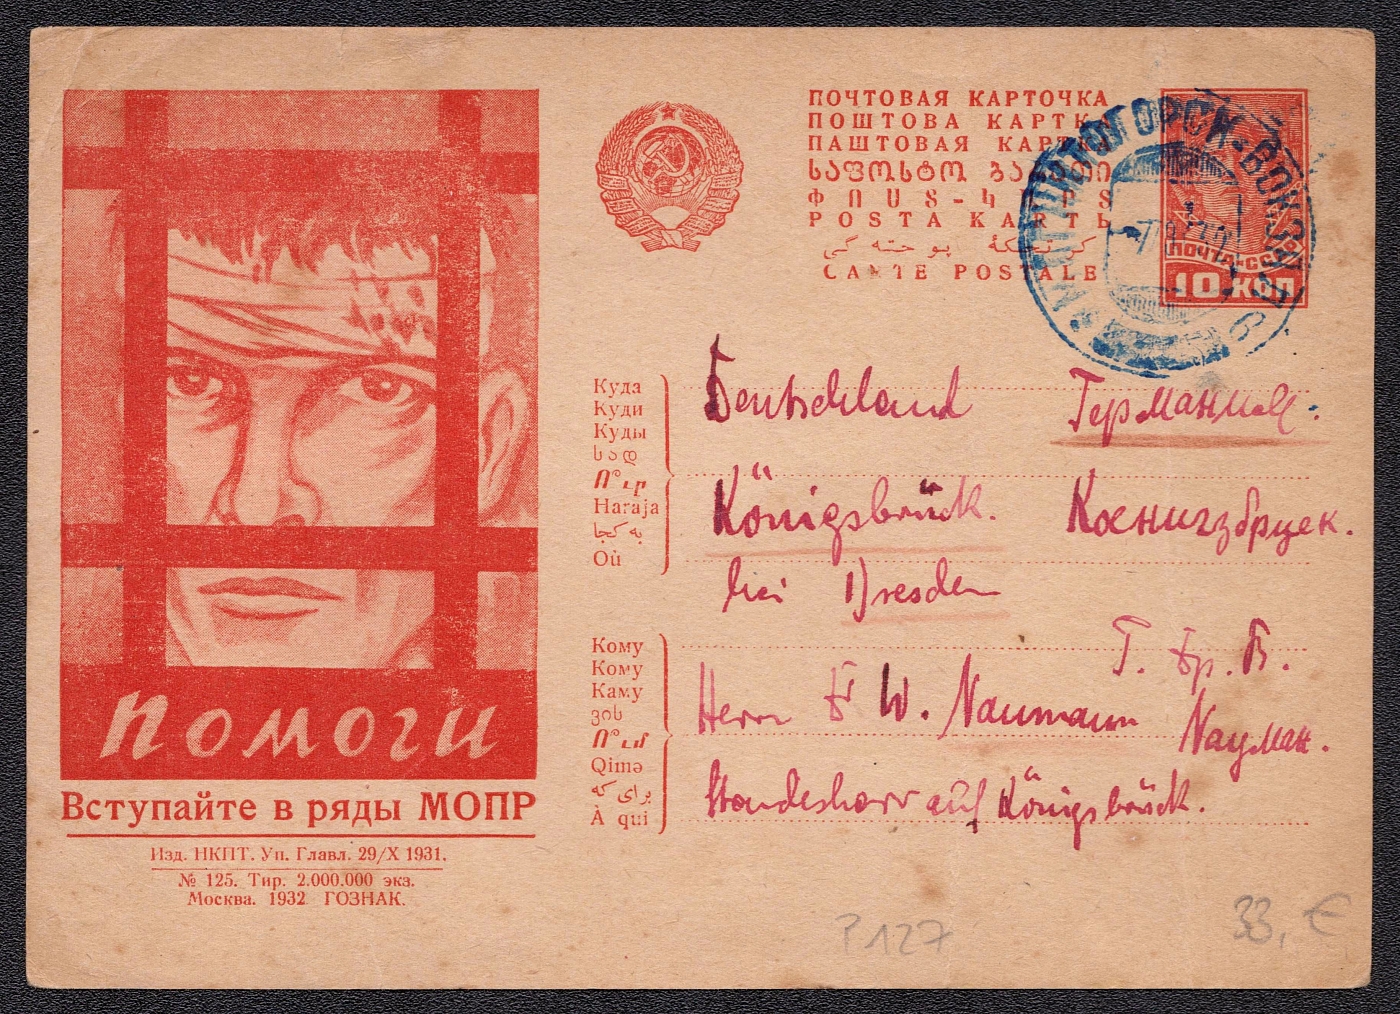 Помоги
Вступайте в ряды МОПР
Изд. НКПТ. Уп. Главл. 29/X 1931.
№ 125. Тир. 2.000.000 экз.
Москва. 1932 ГОЗНАК.
ПОЧТОВАЯ КАРТОЧКА
ПОШТОВА КАРТКА
ПАШТОВАЯ КАРТКА
ՓՈՍՏ-ՔԱՐՏ
POSTA KARTЬ
CARTE POSTALE
ПОЧТА СССР
10 КОП
МАГНИТОГОРСК-ВОКЗАЛ
Куда
Куди
Куды
სად
Ո՞ւր
Haraja
به کجا
Où
Deutschland Германия.
Königsbrück. Коенигзбруек.
bei Dresden
Кому
Кому
Каму
ვის
Ո՞ւմ
Qimə
برای که
À qui
Г. Бр. В.
Herrn W. Naumann Науман.
Standesherr auf Königsbrück.
P 127
33, €